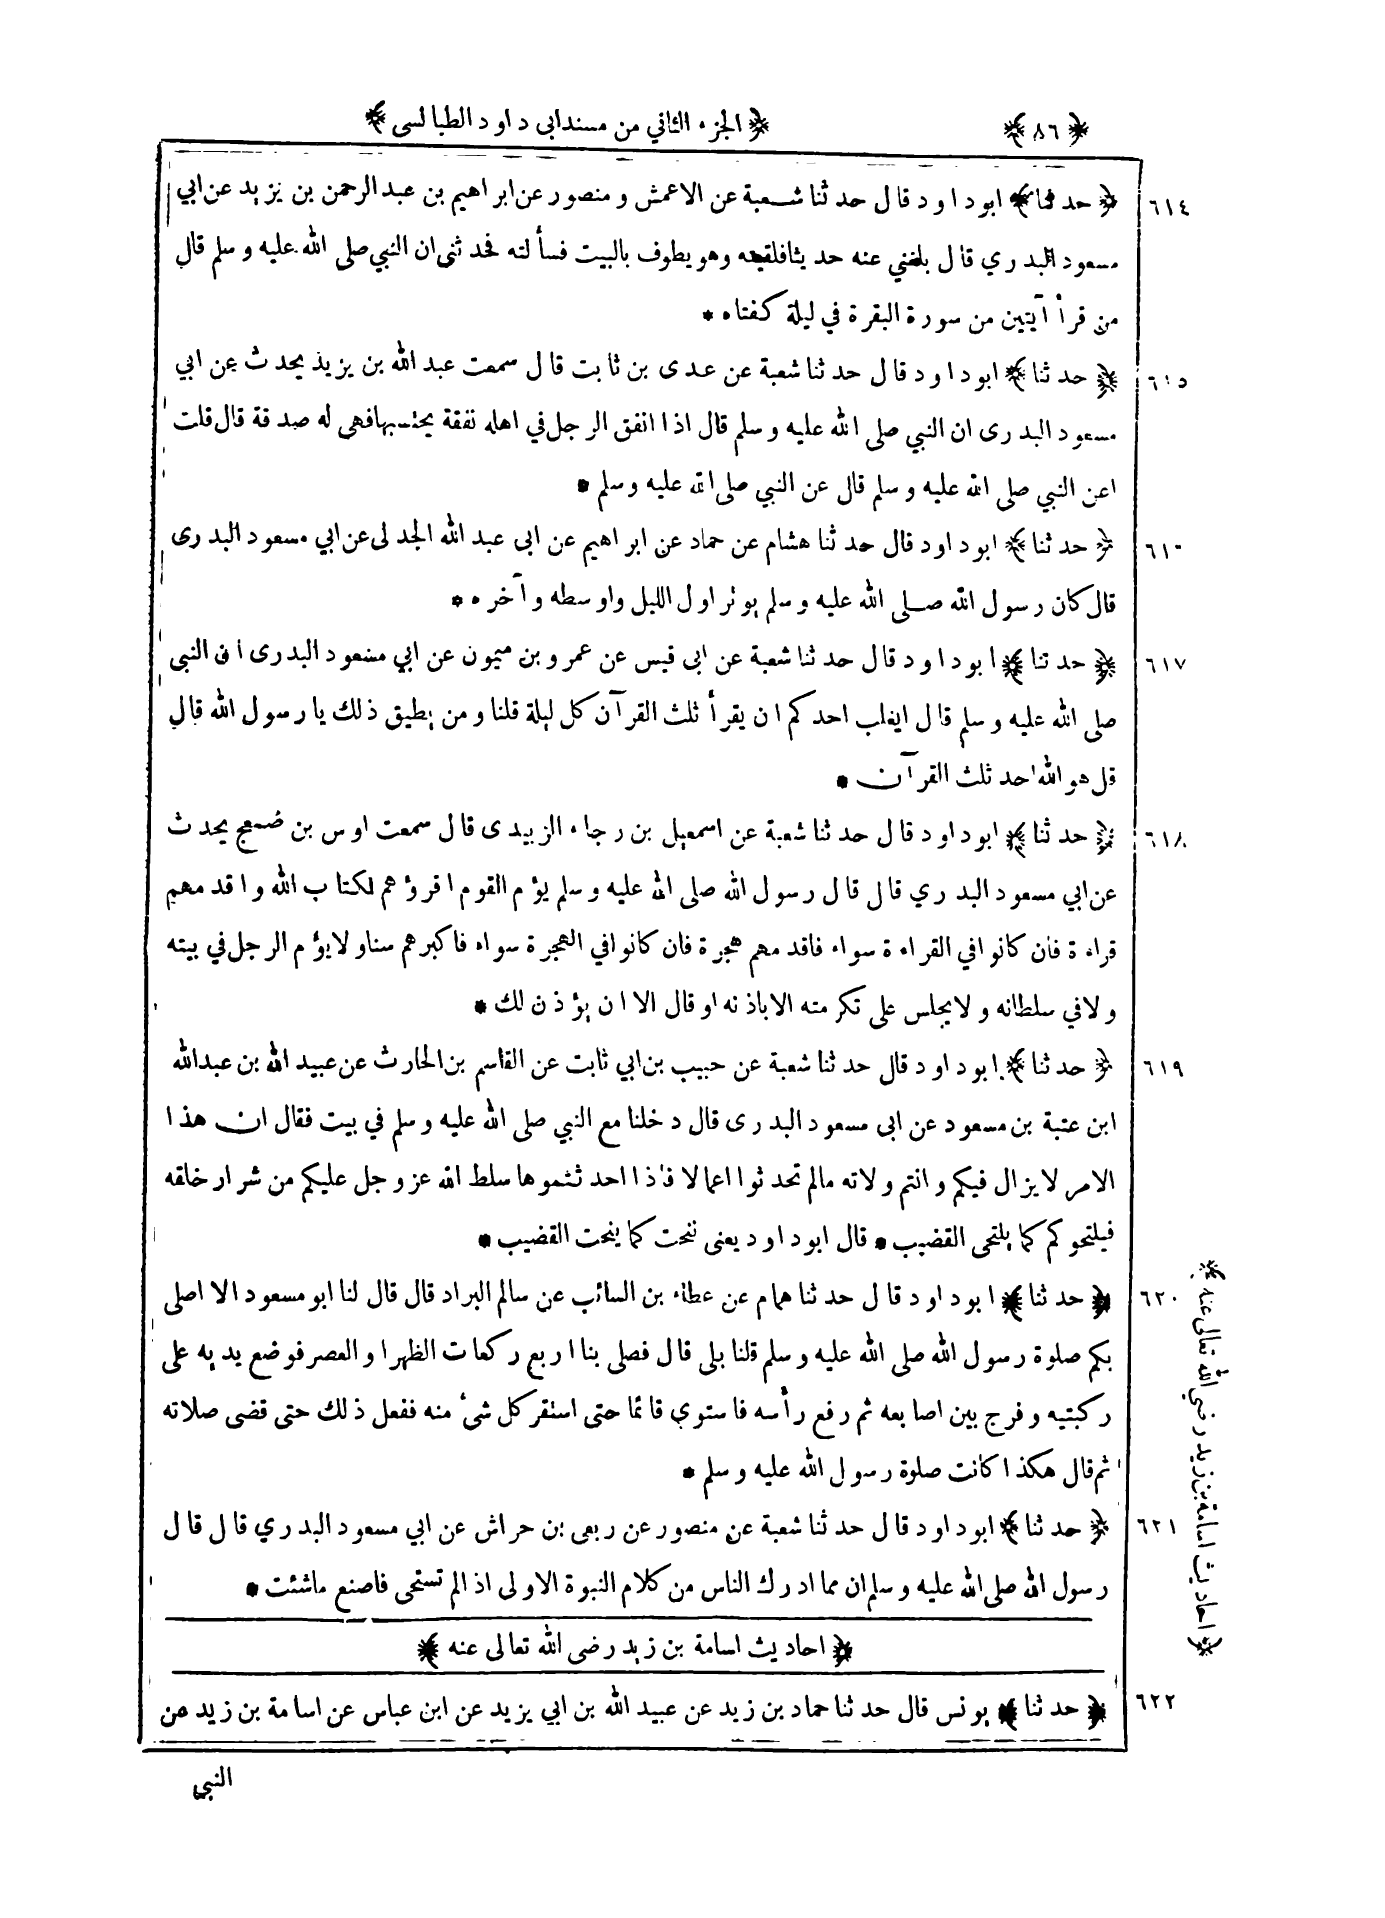 ﴿ ٨٦ ﴾ ﴿ الجزء الثاني من مسند ابى داود الطيالسى ﴾
٦١٤ ﴿ حدثنا ﴾ ابوداود قال حدثنا شعبة عن الاعمش ومنصور عن ابراهيم بن عبد الرحمن بن يزيد عن ابي
مسعود البدري قال بلغني عنه حديثا فلقيته وهو يطوف بالبيت فسألته فحدثنى ان النبي صلى الله عليه وسلم قال
من قرأ آيتين من سورة البقرة في ليلة كفتاه *
٦١٥ ﴿ حدثنا ﴾ ابوداود قال حدثنا شعبة عن عدى بن ثابت قال سمعت عبد الله بن يزيد يحدث عن ابي
مسعود البدرى ان النبي صلى الله عليه وسلم قال اذا انفق الرجل في اهله نفقة يحتسبها فهى له صدقة قال قلت
اعن النبي صلى الله عليه وسلم قال عن النبي صلى الله عليه وسلم *
٦١٦ ﴿ حدثنا ﴾ ابوداود قال حدثنا هشام عن حماد عن ابراهيم عن ابى عبد الله الجدلى عن ابي مسعود البدرى
قال كان رسول الله صلى الله عليه وسلم يوتر اول الليل واوسطه وآخره *
٦١٧ ﴿ حدثنا ﴾ ابوداود قال حدثنا شعبة عن ابى قيس عن عمرو بن ميمون عن ابي مسعود البدرى ان النبى
صلى الله عليه وسلم قال ايغلب احدكم ان يقرأ ثلث القرآن كل ليلة قلنا ومن يطيق ذلك يا رسول الله قال
قل هو الله احد ثلث القرآن *
٦١٨ ﴿ حدثنا ﴾ ابوداود قال حدثنا شعبة عن اسمعيل بن رجاء الزبيدى قال سمعت اوس بن ضمعج يحدث
عن ابي مسعود البدري قال قال رسول الله صلى الله عليه وسلم يؤم القوم اقرؤهم لكتاب الله واقدمهم
قراءة فان كانوا في القراءة سواء فاقدمهم هجرة فان كانوا في الهجرة سواء فاكبرهم سنا ولا يؤم الرجل في بيته
ولا في سلطانه ولا يجلس على تكرمته الا باذنه او قال الا ان يؤذن لك *
٦١٩ ﴿ حدثنا ﴾ ابوداود قال حدثنا شعبة عن حبيب بن ابي ثابت عن القاسم بن الحارث عن عبيد الله بن عبد الله
ابن عتبة بن مسعود عن ابى مسعود البدرى قال دخلنا مع النبي صلى الله عليه وسلم في بيت فقال ان هذا
الامر لا يزال فيكم وانتم ولاته مالم تحدثوا اعمالا فاذا احدثتموها سلط الله عز وجل عليكم من شرار خلقه
فيلتحوكم كما يلتحى القضيب * قال ابوداود يعنى ننحت كما ينحت القضيب *
٦٢٠ ﴿ حدثنا ﴾ ابوداود قال حدثنا همام عن عطاء بن السائب عن سالم البراد قال قال لنا ابو مسعود الا اصلى
بكم صلوة رسول الله صلى الله عليه وسلم قلنا بلى قال فصلى بنا اربع ركعات الظهر او العصر فوضع يديه على
ركبتيه وفرج بين اصابعه ثم رفع رأسه فاستوى قائما حتى استقر كل شئ منه ففعل ذلك حتى قضى صلاته
ثم قال هكذا كانت صلوة رسول الله عليه وسلم *
٦٢١ ﴿ حدثنا ﴾ ابوداود قال حدثنا شعبة عن منصور عن ربعى بن حراش عن ابي مسعود البدري قال قال
رسول الله صلى الله عليه وسلم ان مما ادرك الناس من كلام النبوة الاولى اذا لم تستحى فاصنع ماشئت *
﴿ احاديث اسامة بن زيد رضى الله تعالى عنه ﴾
٦٢٢ ﴿ حدثنا ﴾ يونس قال حدثنا حماد بن زيد عن عبيد الله بن ابي يزيد عن ابن عباس عن اسامة بن زيد عن
النبي
﴿ احاديث اسامة بن زيد رضي الله تعالى عنه ﴾